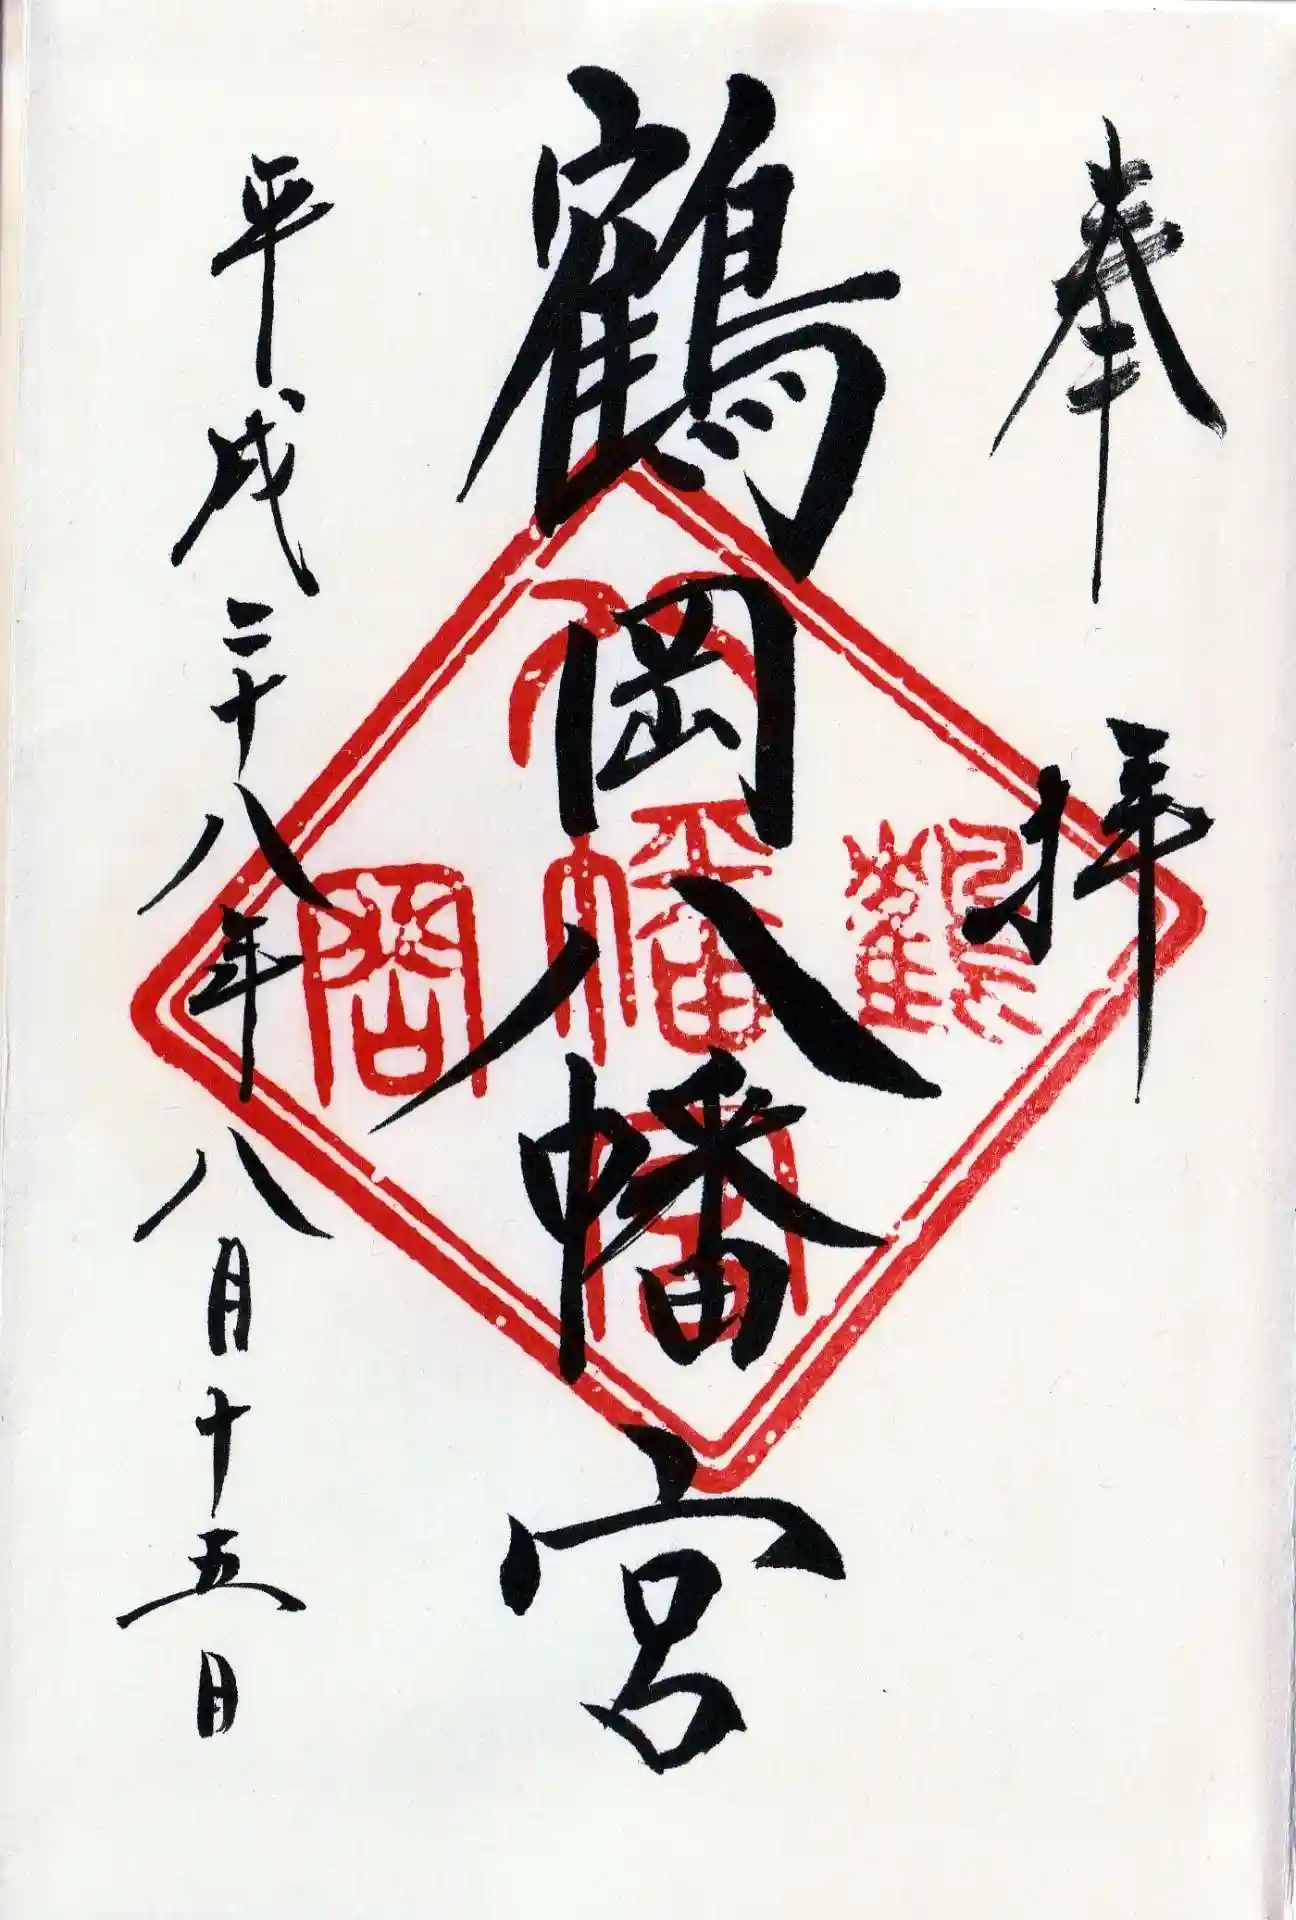 奉拝
鶴岡八幡宮
平成二十八年八月十五日
鶴
八幡宮
岡